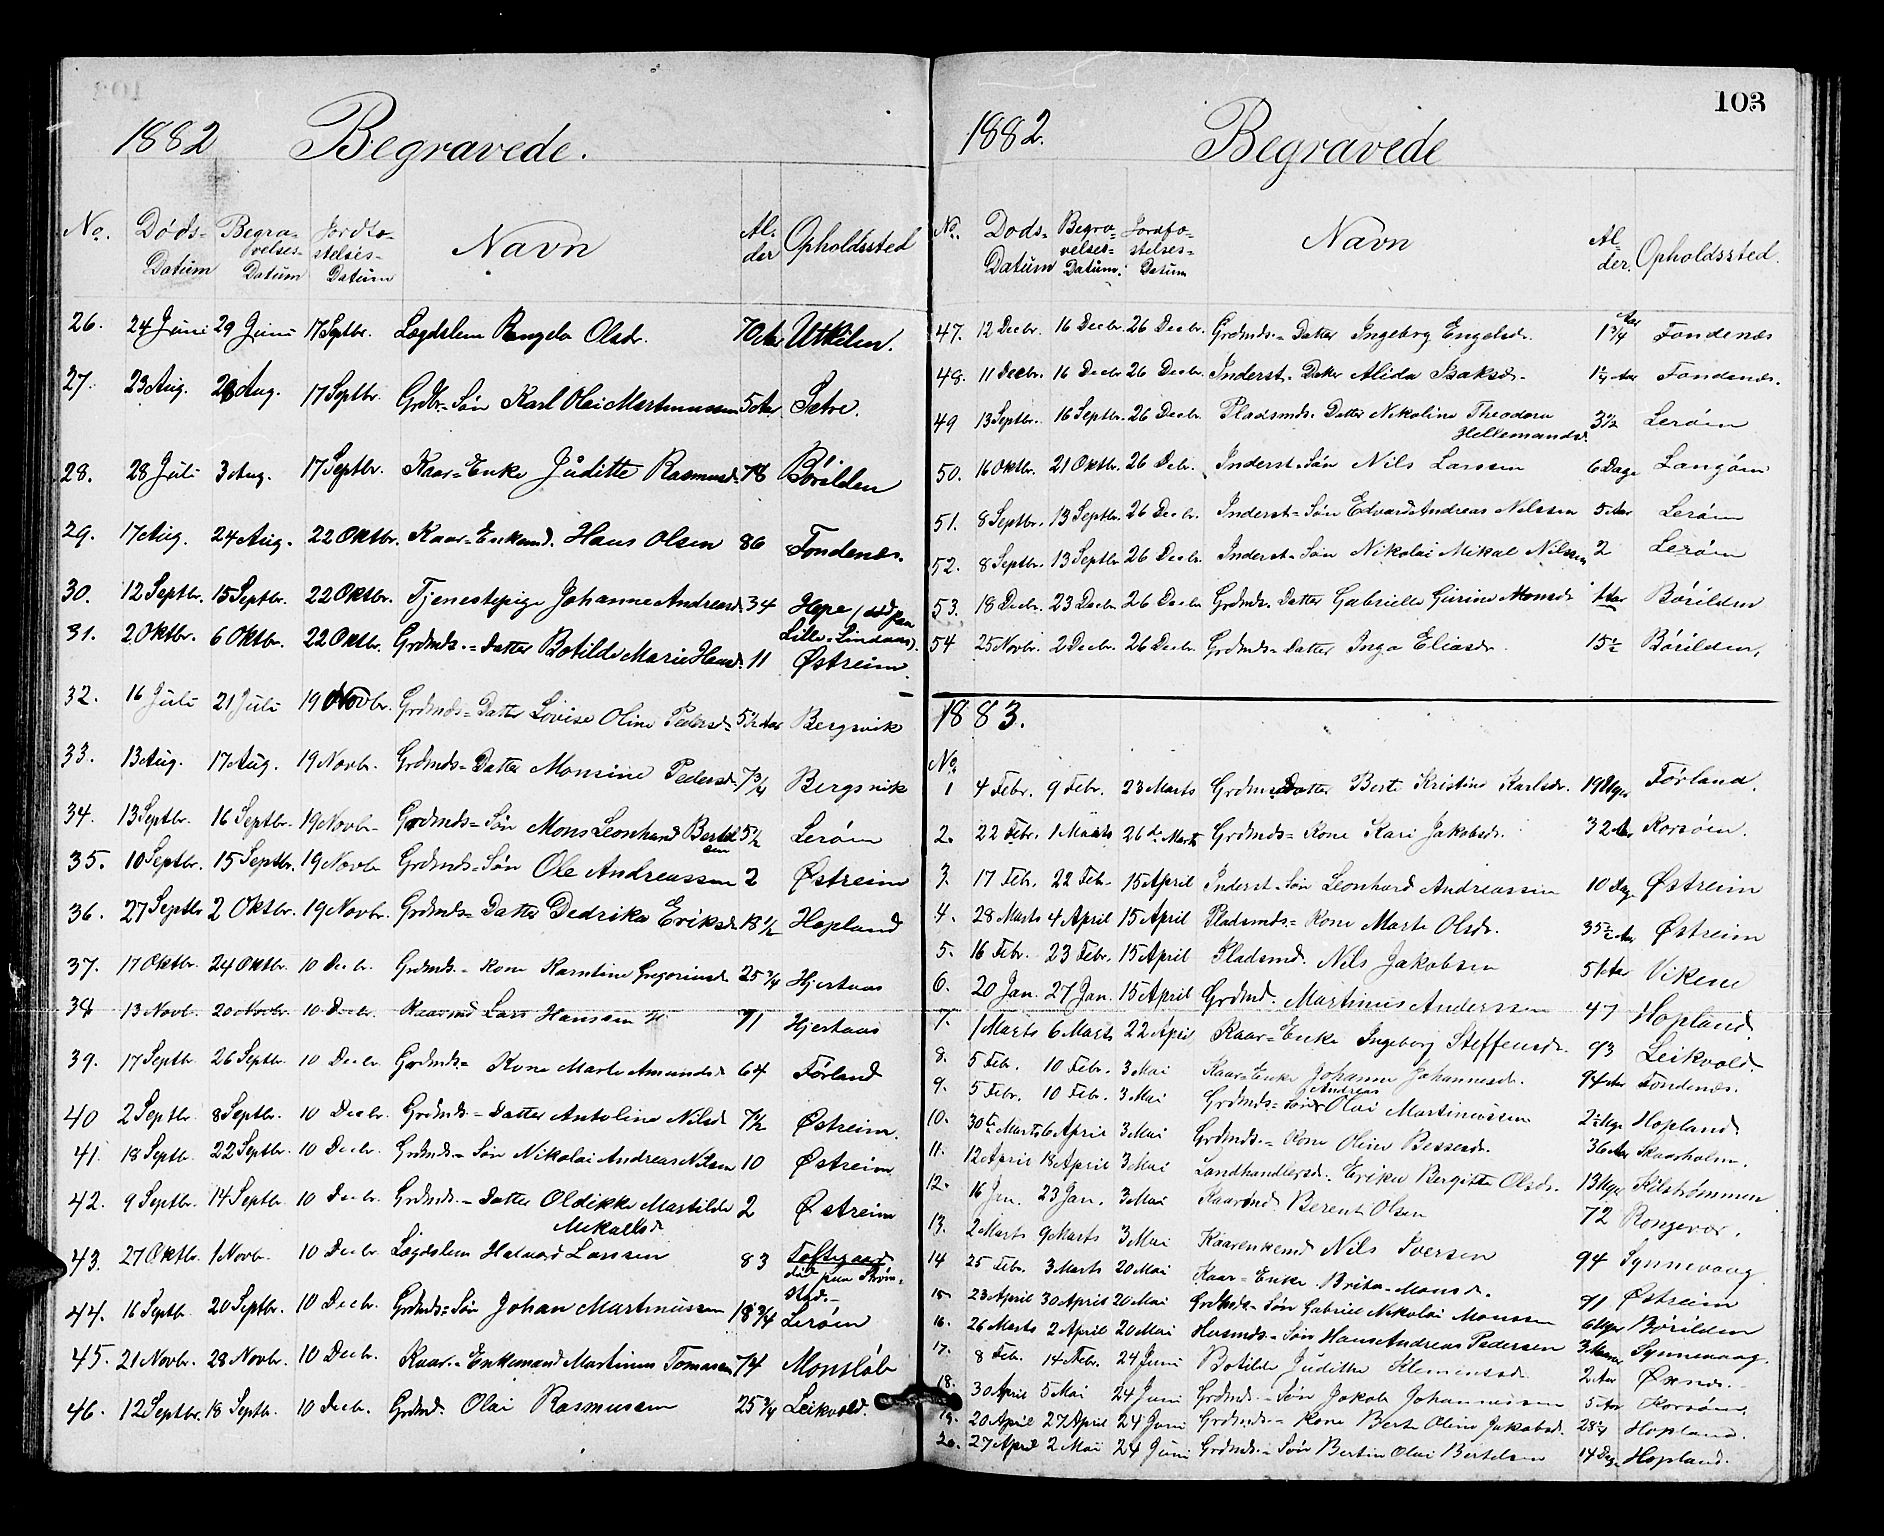 1882 Begravede.
No. Døds-Datum Begravelses-Datum Jordfæstelses-Datum Navn Alder Opholdssted
26. 24 Juni 29 Juni 17 Septbr. Lægdslem Olsdr. 70 Aar Utkilen.
27. 23 Aug. 26 Aug. 17 Septbr. Grdbr.-Søn Karl Olai Martinussen 5 Aar Sætre.
28. 28 Juli 3 Aug. 17 Septbr. Kaar-Enke Juditte Rasmusd. 78 Børilden
29. 17 Aug. 24 Aug. 22 Oktbr. Kaar-Enkemd. Hans Olsen 86 Fondenæs.
30. 12 Septbr. 15 Septbr. 22 Oktbr. Tjenestepige Johanne Andreasd. 34 Hope (død paa
Lille-Lindaas).
31. 2 Oktbr. 6 Oktbr. 22 Oktbr. Grdmds.-Datter Botilde Marie Hansd. 11 Østreim.
32. 16 Juli 21 Juli 19 Novbr. Grdmds-Datter Lovise Oline Pedersd. 5½ Aar Bergsvik
33. 13 Aug. 17 Aug. 19 Novbr. Grdmds-Datter Monsine Pedersd. 7¾ Bergsvik
34. 13 Septbr. 16 Septbr. 19 Novbr. Grdmds-Søn Mons Leonhard Bertel
sen 5½ Lerøen
35. 10 Septbr. 15 Septbr. 19 Novbr Grdmds-Søn Ole Andreassen 2 Østreim
36. 27 Septbr 2 Oktbr. 19 Novbr. Grdmds-Datter Dedrikke Eriksd. 18½ Hopland
37. 17 Oktbr. 24 Oktbr. 10 Decbr. Grdmds.-Kone Gregoriusd. 25¾ Hjertaas
38 13 Novb. 20 Novbr. 10 Decbr. Kaarmd Lars Hanssen 71 Hjertaas
39. 17 Septb 26 Septb. 10 Decbr Grdmds-Kone Marte Amundsd. 64 Førland
40 2 Septbr 8 Septbr. 10 Decbr. Grdmds-Datter Antoline Nilsd. 7½ Østreim.
41. 18 Septb. 22 Septbr. 10 Decbr. Grdmds.-Søn Nikolai Andreas Nilsen 10 Østreim
42. 9 Septbr. 14 Septbr. 10 Decbr. Grdmds.-Datter Oldikke Martilde
Mikalsd. 2 Østreim
43. 27 Oktbr. 1 Novbr. 10 Decbr Lægdslem Halvard Larssen 83 Toftegaard
død paa
44. 16 Septb. 20 Septbr. 10 Decbr. Grdmds-Søn Johan Martinussen 18¾ Lerøen
45. 21 Novbr. 28 Novbr. 10 Decbr. Kaar.-Enkemand Martinus Tomassen 74 Monsløb
46. 12 Septbr. 18 Septb. 10 Decbr. Grdmd. Olai Rasmussen 25¾ Leikvold.
103
1882. Begravede
No. Døds-Datum Begravelses-Datum. Jordfæstelses-Datum Navn Alder. Opholdssted.
47. 12 Decbr. 16 Decbr. 26 Decbr. Grdmds.-Datter Ingeborg Engelsdr. 1¾ Aar Fondenæs
48. 11 Decbr. 16 Decbr 26 Decbr. Inderst.-Dater Alida Isaksdr. Aar Fondenæs.
49 13 Septbr. 16 Septbr. 26 Decbr. Pladsmds. Datter Nikoline Theodora
Hellemandsd. 3½ Lerøen
50. 16 Oktbr. 21 Oktbr. 26 Decbr. Inderst-Søn Nils Larssen 6 Dage Langøen
51. 8 Septbr. 13 Septbr. 26 Decbr. Inderst-Søn Edvard Andreas Nilssen 5 Aar Lerøen
52. 8 Septbr. 13 Septbr 26 Decbr. Inderst.-Søn Nikolai Mikal Nilssen 2 Lerøen
53. 18 Decbr. 23 Decbr. 26 Decbr Grdmds. Datter Gabrielle Gurine Monsdr 1 Aar Børilden
54 25 Novbr. 2 Decbr. 26 Decbr Grdmds-Datter Inga Eliasdr. 15½ Børilden.
1883.
No.
1 4 Febr. 9 Febr. 23 Marts Grdmds Datter Berte Kristine Karlsdr. 19 Uger Førland.
2. 22 Febr. 1 Marts 26de Marts Grdmds-Kone Kari Jakobsdr. 32 Aar Korsøen.
3. 17 Febr. 22 Feb. 15 April Inderst-Søn Leonhard Andreassen 10 Dage Østreim
4. 28 Marts 4 April 15 April Pladsmds-Kone Marte Olsdr. 35½ Aar Østreim
5. 16 Febr. 23 Febr. 15 April Pladsmd. Nils Jakobsen 51 Aar Vikene
6. 20 Jan. 27 Jan. 15 April Grdmd. Martinus Anderssen 47 Hopland.
7. 1 Marts 6 Marts 22 April Kaar-Enke Ingeborg Steffensdr. 93 Leikvold
8. 5 Febr. 10 Febr. 3 Mai Kaar-Enke Johanne Johannesdr. 94 Aar Fondenæs.
9. 5 Febr. 10 Febr. 3 Mai Grdmds-Søn Andreas Olai Martinussen 2½ Uge Hopland.
10. 30te Marts 6 April 3 Mai Grdmds.-Kone Oline Bessesdr. 36 Aar Skaarholm.
11. 12 April 18 April 3 Mai Landhandlersd. Erikke Bergitte Olsdr. 13 Uger Kilstrømmen
12. 16 Jan. 23 Jan. 3 Mai Kaarmd Berent Olsen 72 Rongevær.
13. 2 Marts 9 Marts 3 Mai Kaarenkemd Nils Iversen 94 Synnevaag
14 25 Febr. 3 Marts 20 Mai Kaar-Enke Brita Monsdr. 91 Østreim
15. 23 April 30 April 20 Mai Grdmds-Søn Gabriel Nikolai Monssen 6 Uger Børilden
16. 26 Marts 2 April 20 Mai Husmds-Søn Hans Andreas Pedersen 3 Maaneder Synnevaag.
17. 8 Feb. 14 Feb. 24 Juni Botilde Juditha Klemensd. 2 Aar Øxnæs.
18. 30 April 5 Mai 24 Juni Grdmds.-Søn Jakob Johannessen 5 Aar Korsøen.
19. 20 April 27 April 24 Juni Grdmds-Kone Berte Oline Jakobsd. 28 Hopland.
20. 27 April 2 Mai 24 Juni Grdmds-Søn Bertin Olai Bertelsen 14 Dage Hopland.